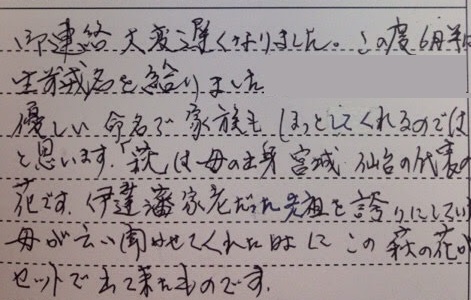 御連絡大変遅くなりました。この度6月半に
生前戒名を給りました
優しい命名で家族もほっとしてくれるのでは
と思います。「萩」は母の出身宮城 仙台の代表の
花です。伊達藩家老だった先祖を誇りにしてい
母が云い聞かせてくれた時にこの萩の花が
セットで出て来たものです。